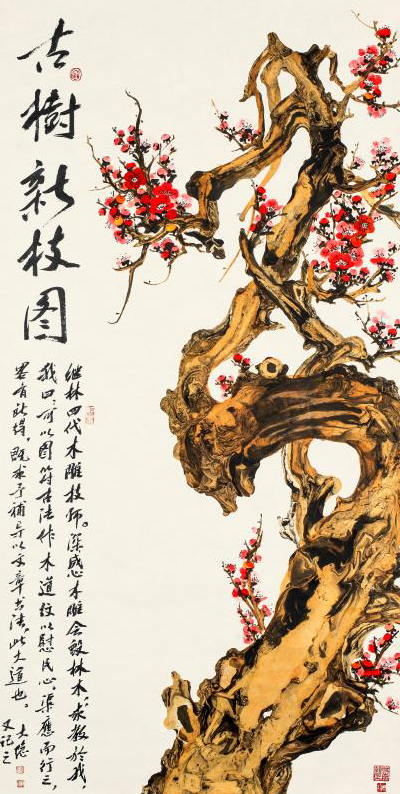 古樹新枝图
继林四代木雕技师。深感木雕会毁林木，求教於我，
我曰：可以图符古法作木道纹以慰民心，渠應而行之，
略有新得，既求予補景以文章书法，此大道也。
大隐
又记之